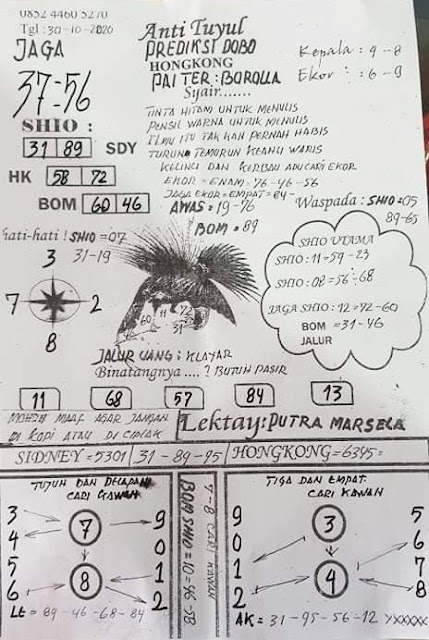 0852 4460 5270
Tgl : 30-10-2020
JAGA
37=56
SHIO :
31 89 SDY
HK 58 72
BOM 60 46
Anti Tuyul
PREDIKSI DOBO
HONGKONG
PAITER : BOROLLA
Syair.......
Kepala : 9-8
Ekor : 6-9
TINTA HITAM UNTUK MENULIS
PENSIL WARNA UNTUK MENULIS
ILMU ITU TAK KAN PERNAH HABIS
TURUN TEMURUN KEAHLI WARIS
KELINCI DAN KERBAU ADU CARI EKOR
EKOR = ENAM = 76-46-56
JAGA EKOR = EMPAT = 84-
AWAS = 19-76
BOM = 89
Waspada : SHIO = 05
89-65
hati-hati ! SHIO = 07
31-19
3
7 2
8
60 11 72
31
SHIO UTAMA
SHIO : 11 = 59-23
SHIO : 08 = 56-68
JAGA SHIO : 12 = 72-60
BOM = 31-46
JALUR
JALUR UANG : KLAYAR
Binatangnya ....? BUTUH PASIR
11 68 57 84 13
MOHON MAAF AGAR JANGAN
DI KOPI ATAU DI CIPLAK
Lektay: PUTRA MARSELA
SIDNEY = 5301 31-89-95 HONGKONG = 6345 =
TUJUH DAN DELAPAN
CARI KAWAN
3 7 9
4 0
5 1
6 8 2
LE = 89-46-68-84
7-8 CARI KAWAN
BOM SHIO = 10 = 96-58
TIGA DAN EMPAT
CARI KAWAN
9 3 5
0 6
1 7
2 4 8
AK = 31-95-56-12 YXXXXX